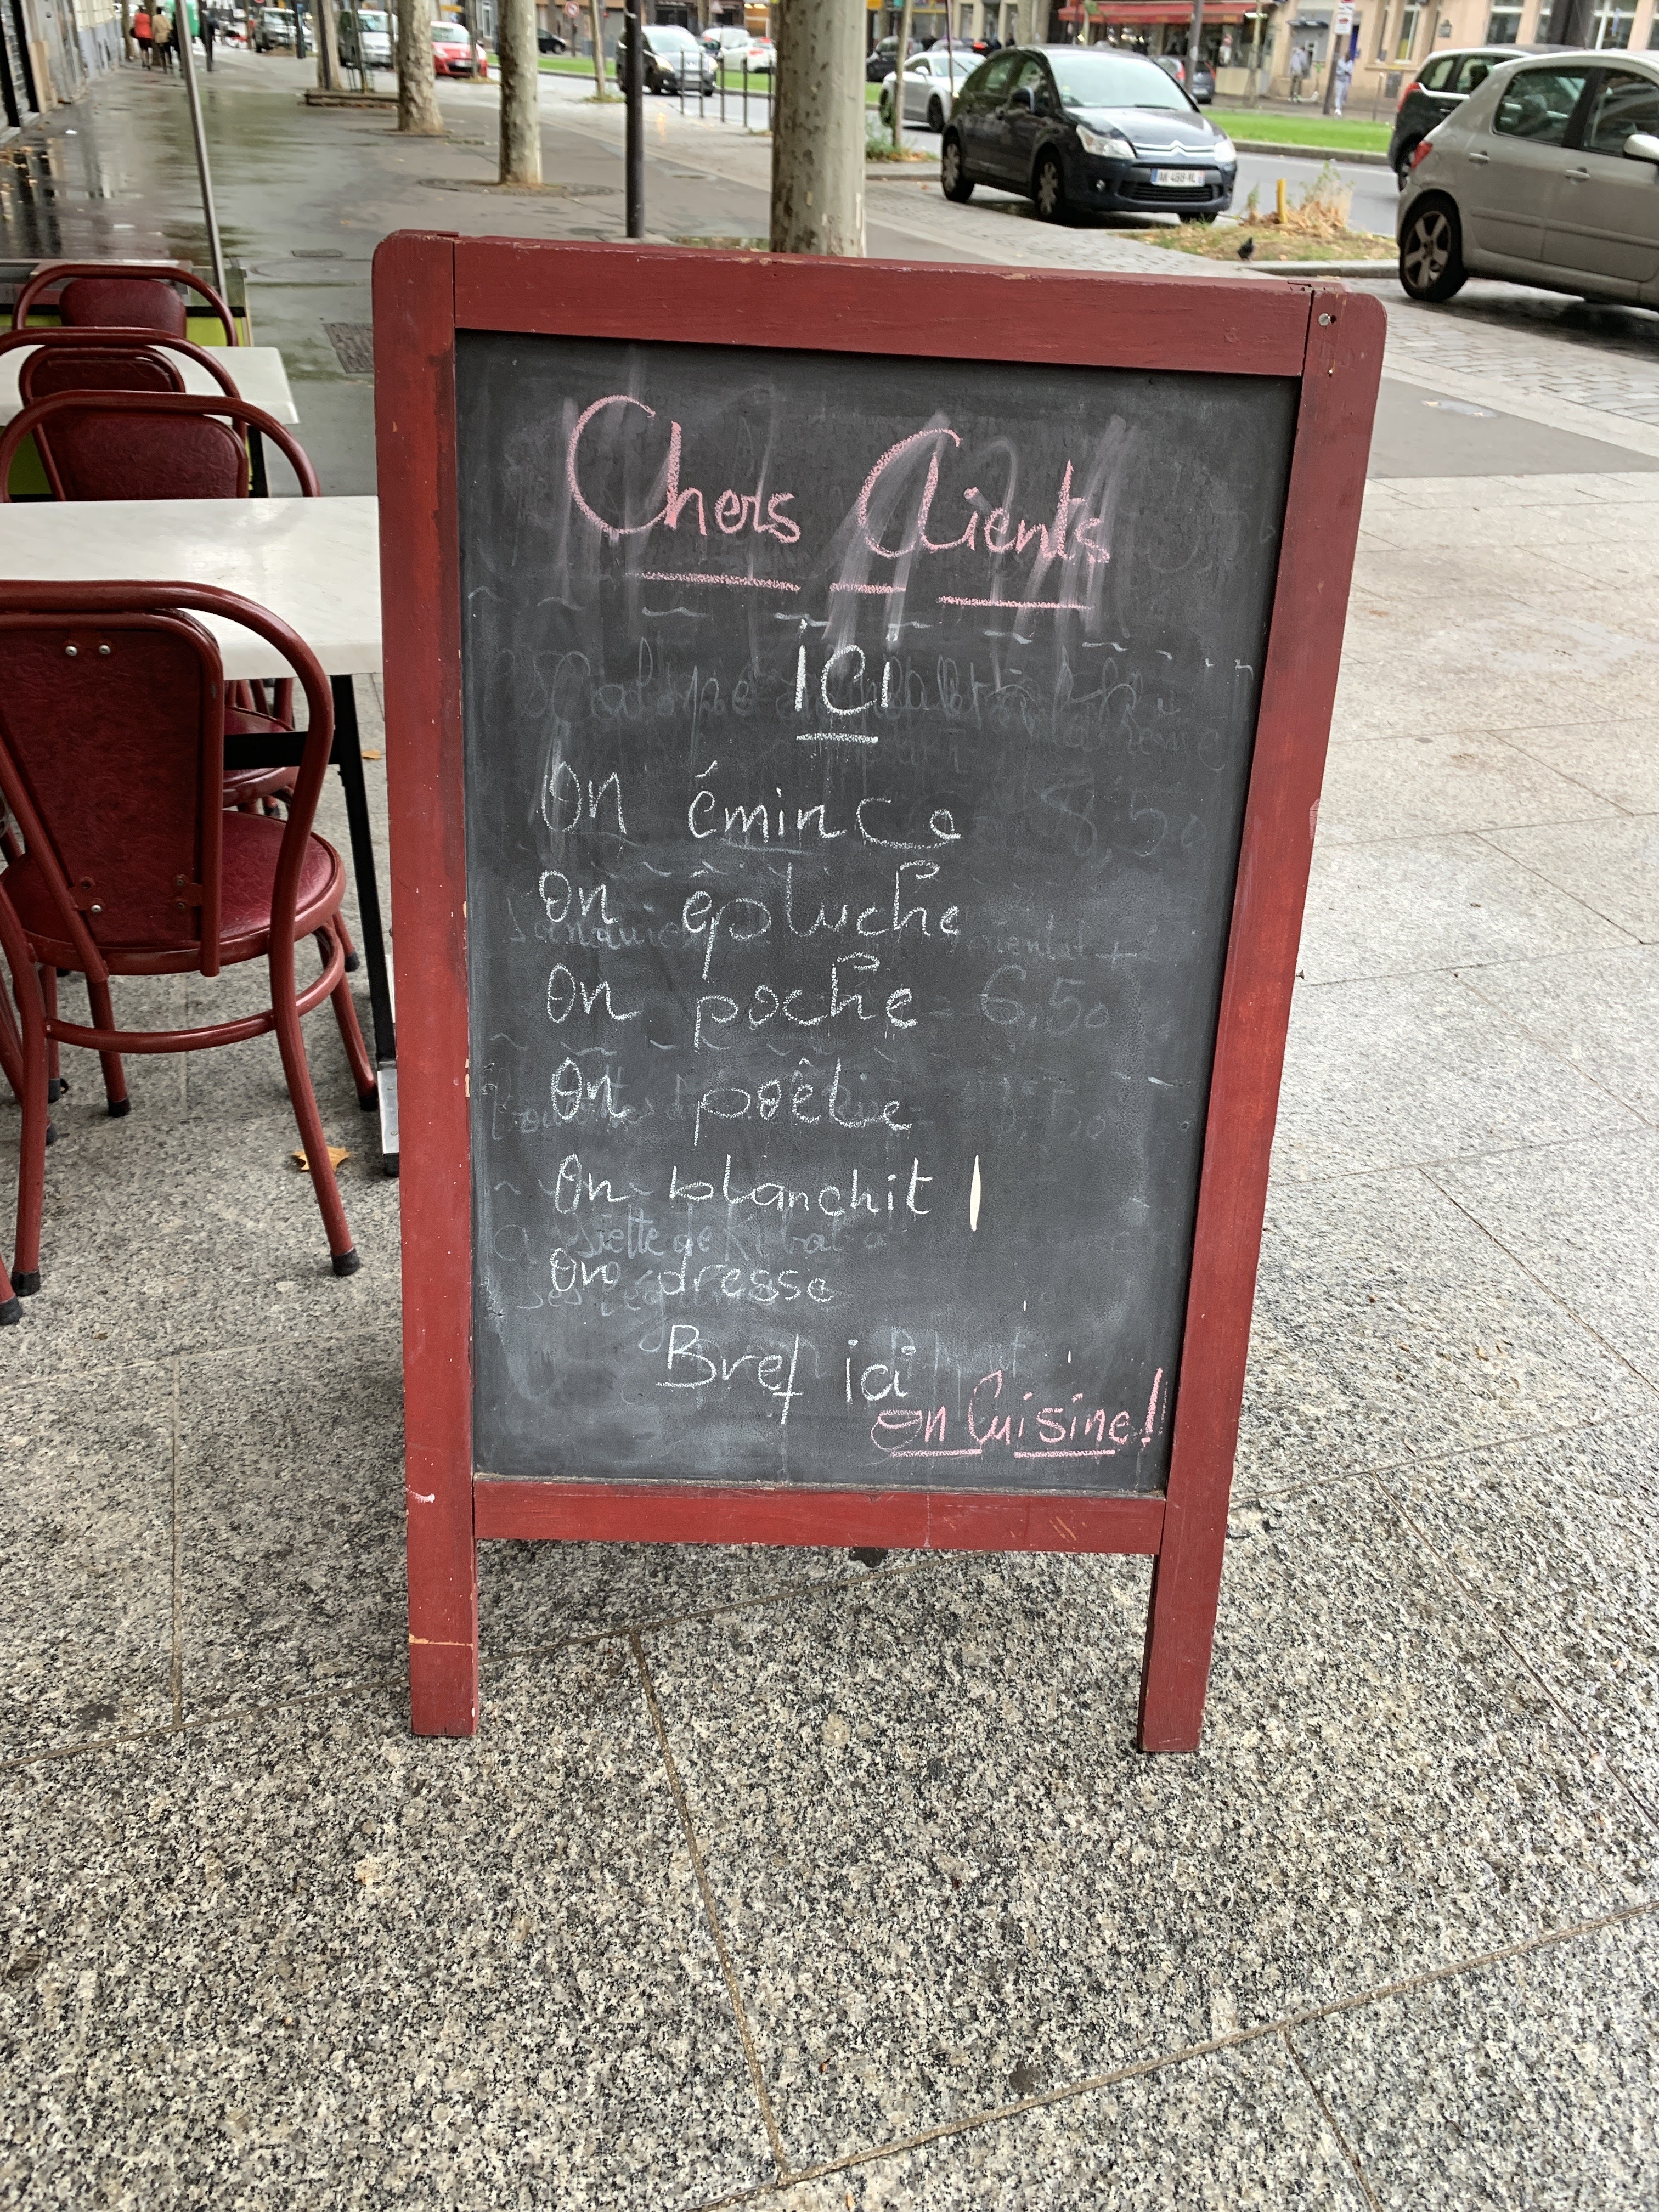 Chers Clients
ICI
On émince
On êpluche
On poche
On poêle
On blanchit
On dresse
Bref ici
on Cuisine!